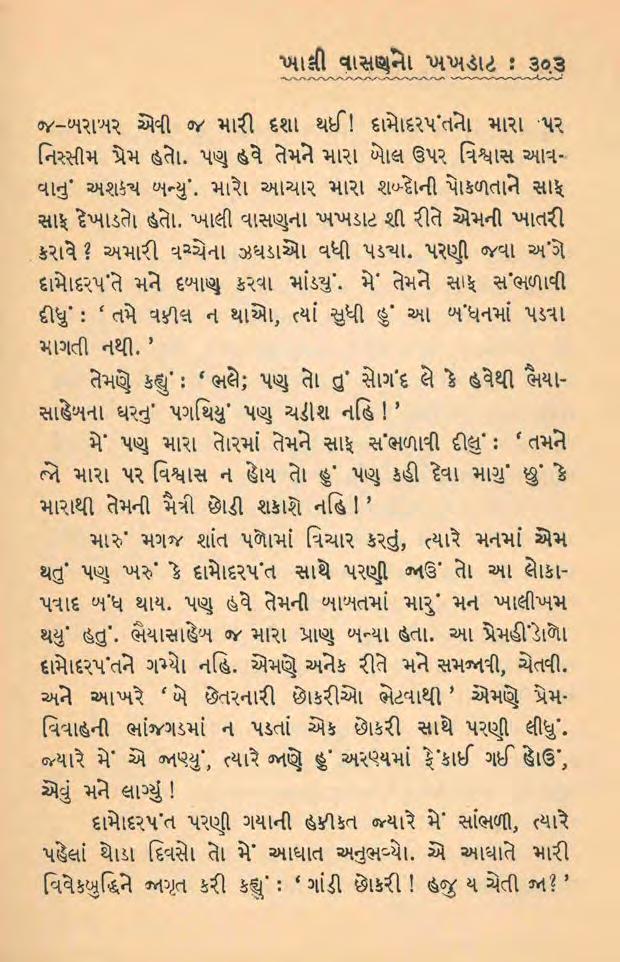 ખાલી વાસણનો ખખડાટ : ૩૦૩
જ-બરાબર એવી જ મારી દશા થઈ! દામોદરપંતનો મારા પર
નિસ્સીમ પ્રેમ હતો. પણ હવે તેમને મારા બોલ ઉપર વિશ્વાસ આવ-
વાનું અશકય બન્યું. મારો આચાર મારા શબ્દોની પોકળતાને સાફ
સાફ દેખાડતો હતો. ખાલી વાસણના ખખડાટ શી રીતે એમની ખાતરી
કરાવે? અમારી વચ્ચેના ઝઘડાઓ વધી પડયા. પરણી જવા અંગે
દામોદરપંતે મને દબાણ કરવા માંડયું. મેં તેમને સાફ સંભળાવી
દીધું : ‘ તમે વકીલ ન થાઓ, ત્યાં સુધી હું આ બંધનમાં પડવા
માગતી નથી. ’
તેમણે કહ્યું : ‘ ભલે; પણ તો તું સોગંદ લે કે હવેથી ભૈયા-
સાહેબના ઘરનું પગથિયું પણ ચડીશ નહિ ! ’
મેં પણ મારા તોરમાં તેમને સાફ સંભળાવી દીલું : ‘ તમને
જો મારા પર વિશ્વાસ ન હોય તો હું પણ કહી દેવા માગું છું કે
મારાથી તેમની મૈત્રી છોડી શકાશે નહિ ! ’
મારું મગજ શાંત પળોમાં વિચાર કરતું, ત્યારે મનમાં એમ
થતું પણ ખરું કે દામોદરપંત સાથે પરણી જાઉં તો આ લોકા-
પવાદ બંધ થાય. પણ હવે તેમની બાબતમાં મારું મન ખાલીખમ
થયું હતું. ભૈયાસાહેબ જ મારા પ્રાણ બન્યા હતા. આ પ્રેમહીંડોળો
દામોદરપંતને ગમ્યો નહિ. એમણે અનેક રીતે મને સમજાવી, ચેતવી.
અને આખરે ‘ બે છેતરનારી છોકરીઓ ભેટવાથી ’ એમણે પ્રેમ-
વિવાહની ભાંજગડમાં ન પડતાં એક છોકરી સાથે પરણી લીધું.
જ્યારે મેં એ જાણ્યું, ત્યારે જાણે હું અરણ્યમાં ફેંકાઈ ગઈ હોઉં,
એવું મને લાગ્યું !
દામોદરપંત પરણી ગયાની હકીકત જ્યારે મેં સાંભળી, ત્યારે
પહેલાં થોડા દિવસો તો મેં આઘાત અનુભવ્યો. એ આઘાતે મારી
વિવેકબુદ્ધિને જાગૃત કરી કહ્યું : ‘ ગાંડી છોકરી ! હજુ ય ચેતી જા? ’